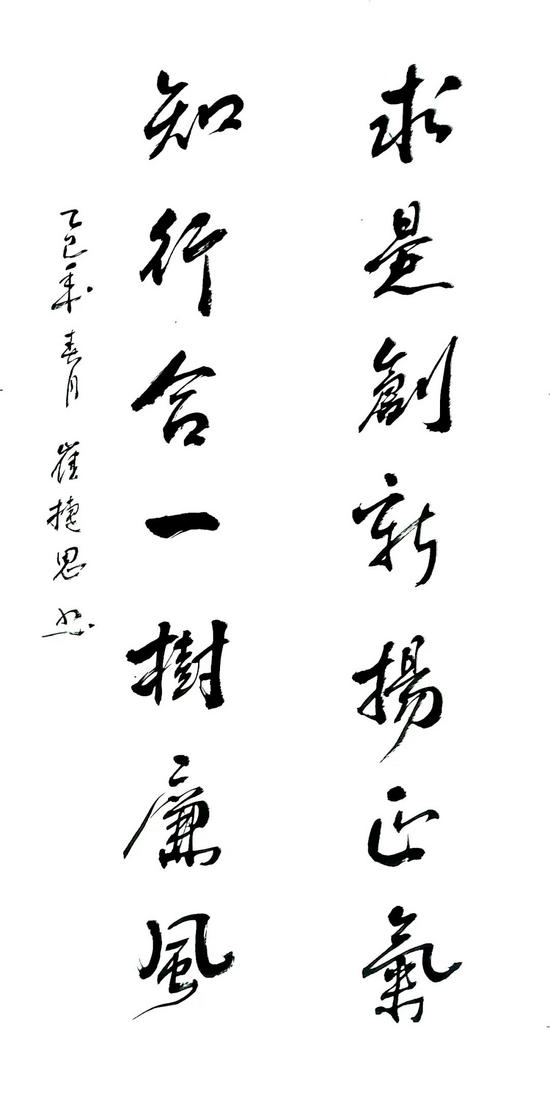 求是創新揚正氣
知行合一樹廉風
乙巳年春月 崔捷思书